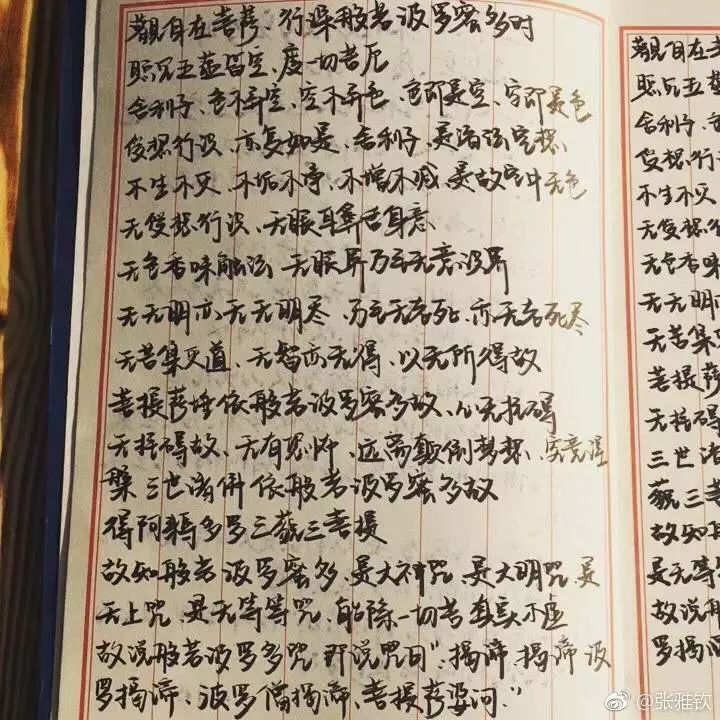 觀自在菩萨、行深般若波罗密多时
照见五蕴皆空、度一切苦厄
舍利子、色不异空、空不异色、色即是空、空即是色
受想行识、亦复如是、舍利子、是诸法空相、
不生不灭、不垢不净、不增不减、是故空中无色
无受想行识、无眼耳鼻舌身意
无色香味触法 无眼界乃至无意识界
无无明亦无无明尽、乃至无老死、亦无老死尽
无苦集灭道、无智亦无得、以无所得故
菩提萨埵依般若波罗密多故、心无挂碍
无挂碍故、无有恐怖、远离颠倒梦想、究竟涅
槃 三世诸佛 依般若波罗密多故
得阿耨多罗三藐三菩提
故知般若波罗密多、是大神咒 是大明咒、是
无上咒、是无等等咒、能除一切苦 真实不虚
故说般若波罗多咒 那说咒曰“揭谛 揭谛 波
罗揭谛、波罗僧揭谛、菩提萨婆诃。”
觀自在菩
照见五蕴
舍利子、色
受想行识
不生不灭
无受想行
无色香味
无无明亦
无苦集灭
菩提萨
无挂碍
三世诸
藐三菩
故知般
是无等等
故说般若
罗揭谛
@张雅钦